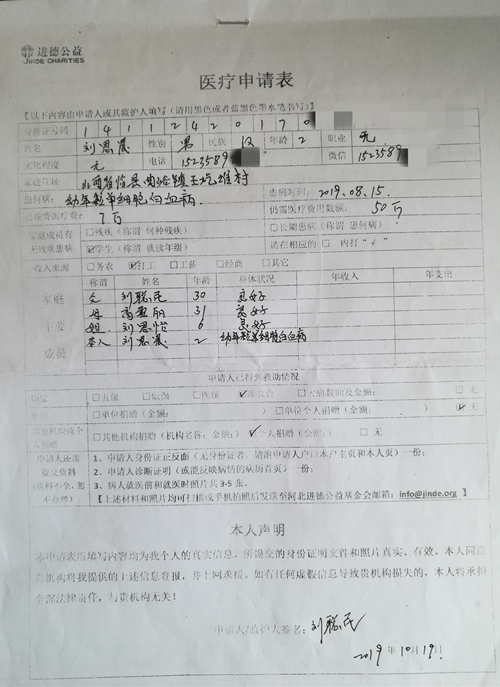 进德公益
JINDE CHARITIES
医疗申请表
【以下内容由申请人或其监护人填写(请用黑色或者蓝黑色墨水笔书写)】
身份证号码 1 4 1 1 2 4 2 0 1 7 0
姓名 刘思晨 性别 男 民族 汉 年龄 2 职业 无
文化程度 无 电话 1523589 微信 1523589
家庭住址 山西省临县
患何病: 幼年粒单细胞白血病 患病时间: 2019.08.15.
已花费医疗费: 7万 仍需医疗费用数额: 50万
家庭成员有 □残疾(称谓 何种残疾) □长期患病(称谓 患何病)
无残疾患病 ☑学生(称谓 就读年级) 请在相应的□内打"√"
收入来源 □务农 ☑打工 □工薪 □经商 □其它
家庭主要成员 称谓 姓名 年龄 身体状况 年收入 年支出
父 刘聪民 30 良好
母 丽 31 良好
姐 刘思怡 6 良好
本人 刘思晨 2 幼年粒单细胞白血病
申请人已得到救助情况
国家 □五保 □低保 □医保 □大病救助及金额: □无
□单位捐赠(金额: ) □单位个人捐赠(金额: ) ☑无
□其他机构捐赠(机构名称: 金额:) ☑个人捐赠(金额: ) □无
申请人还需提交资料(资料不全、恕不办理)
1、申请人身份证正反面(无身份证者、请谢申请人户口本户主页和本人页)一份;
2、申请人诊断证明(或能反映病情的病历首页)一份;
3、病人就医前和就医时照片共3-5张,
【上述材料和照片均可扫描或手机拍照后发送至河北进德公益基金会邮箱:info@jinde.org】
本人声明
本申请表所填写内容均为我个人的真实信息,所提交的身份证明文件和照片真实、有效。本人同意
贵机构将我提供的上述信息登报,并上网求援。如有任何虚假信息导致贵机构损失的,本人将承担
全部法律责任,与贵机构无关!
申请人/监护人签名: 刘聪民
2019年10月19日